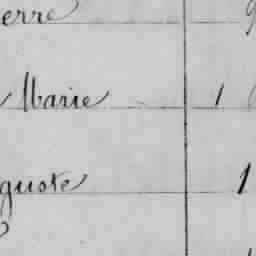 erre
Marie 1
guste 1